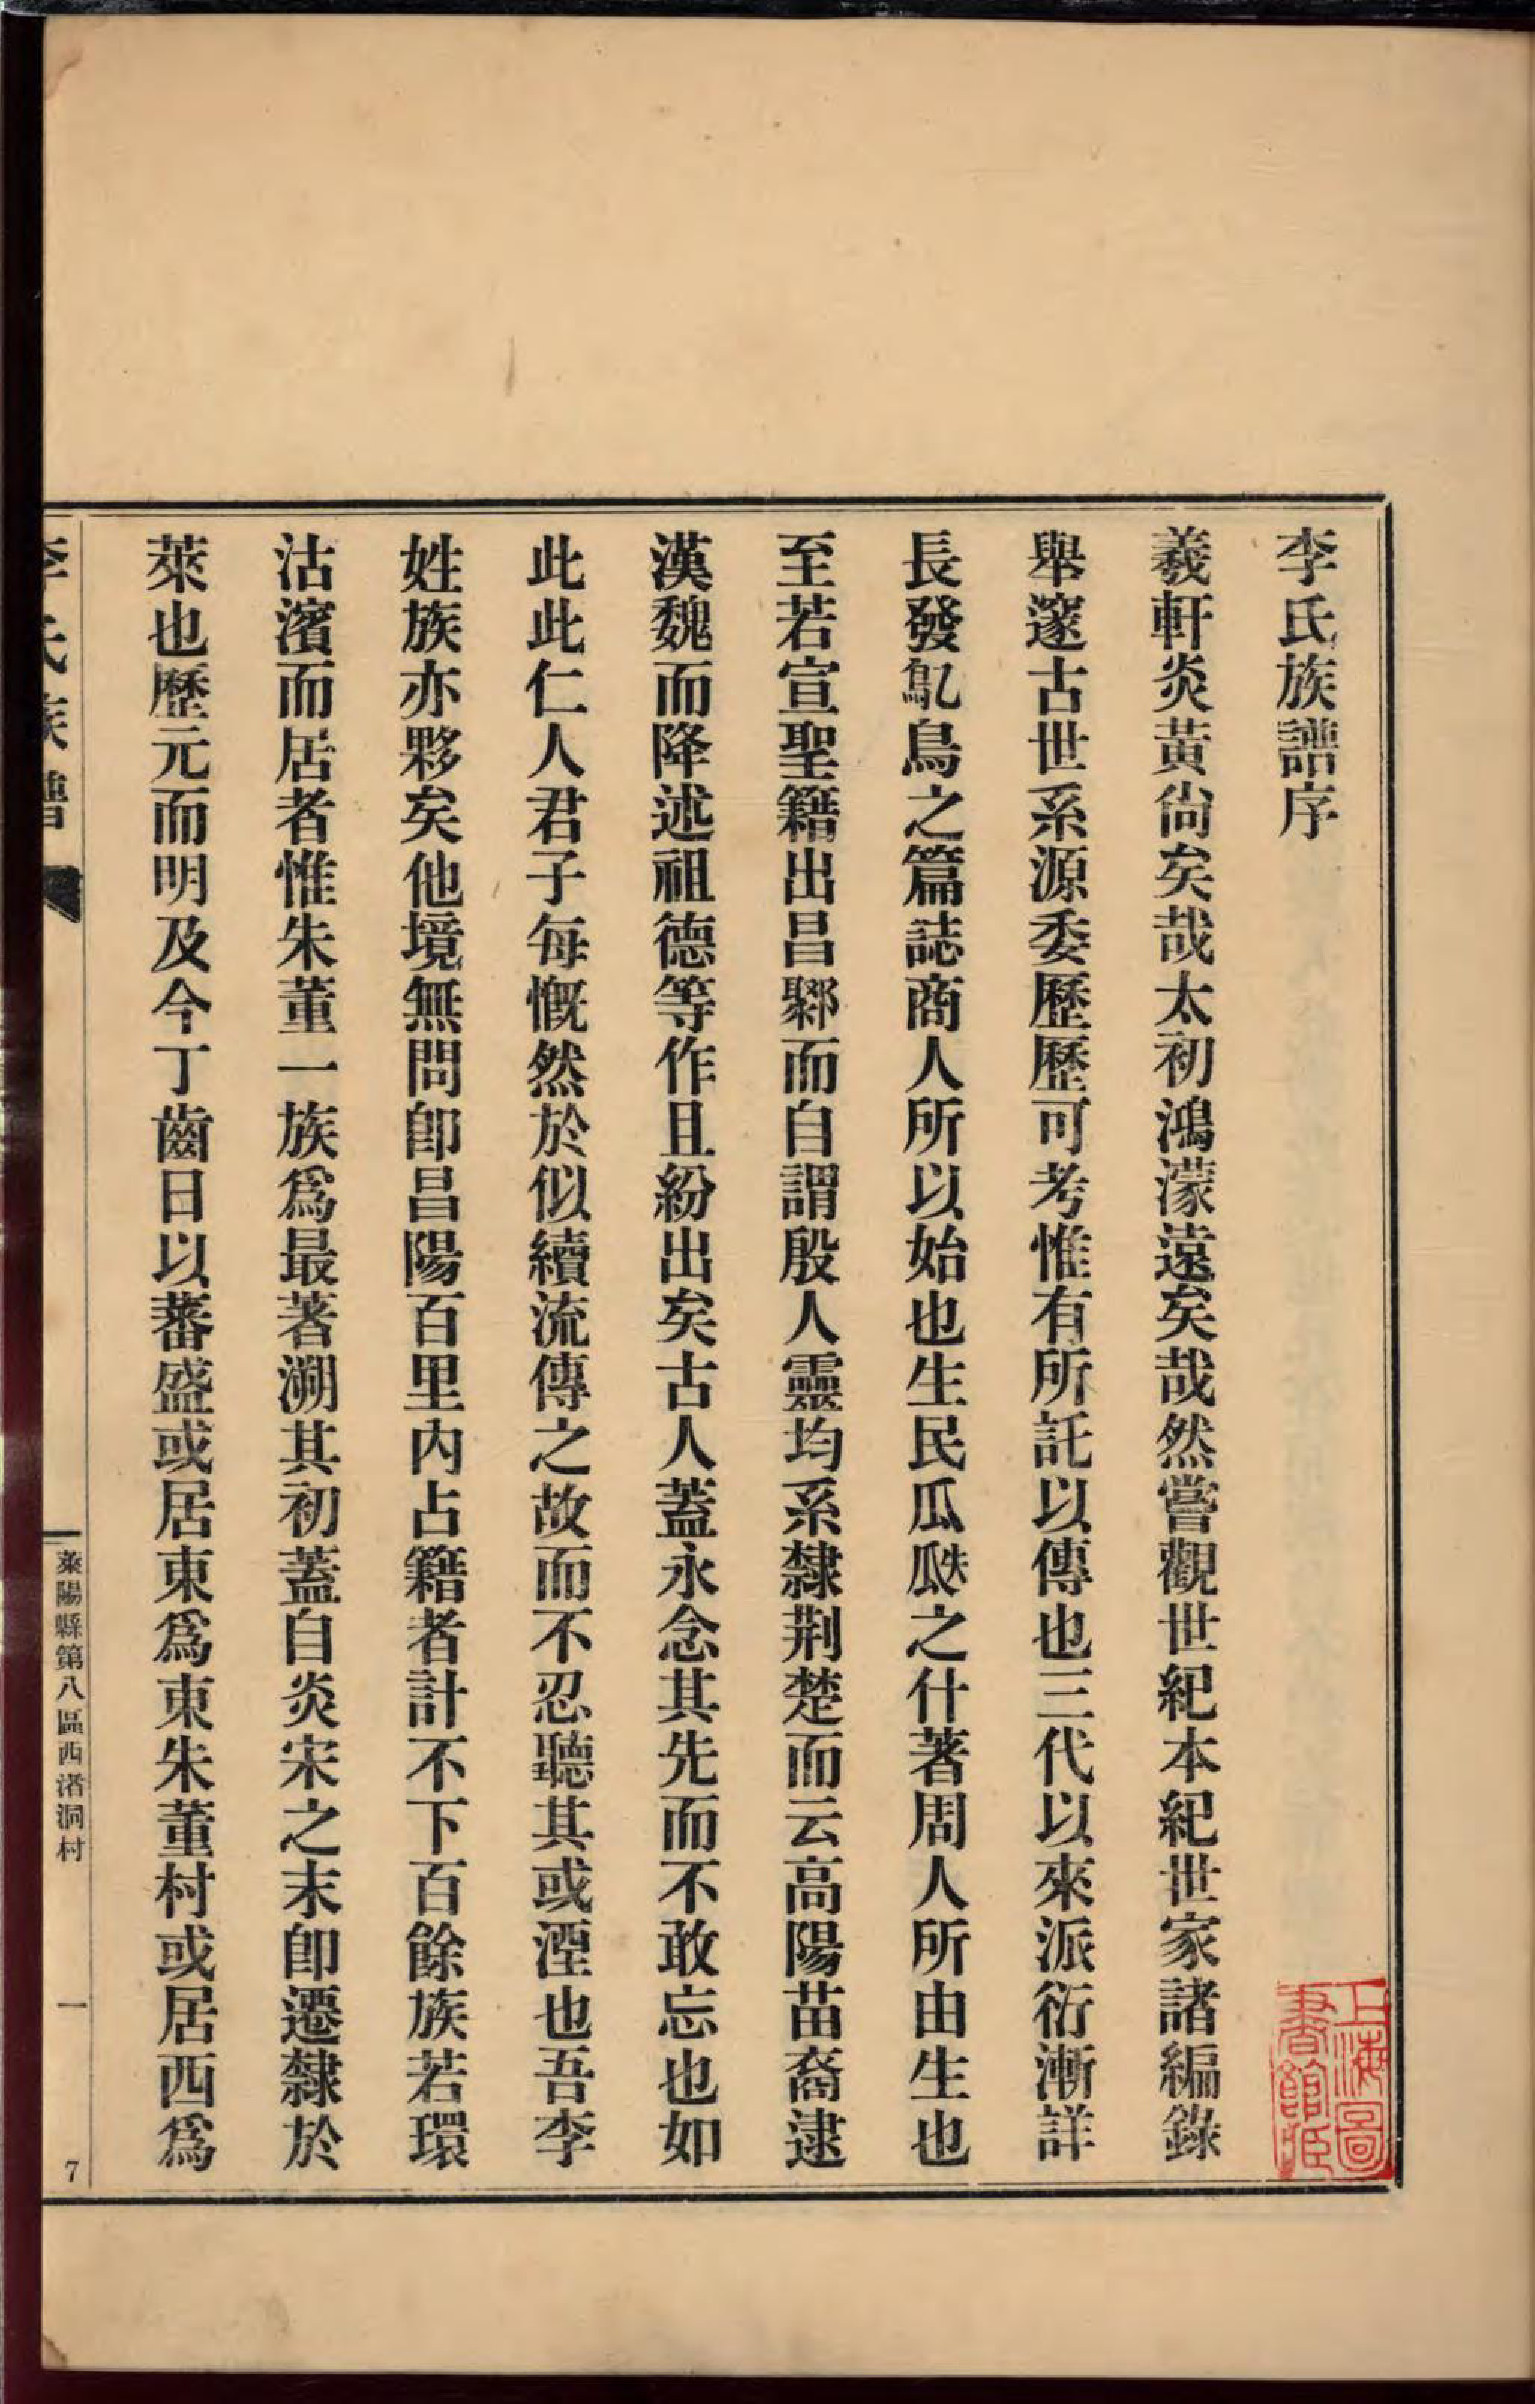 李氏族譜序
羲軒炎黃尙矣哉太初鴻濛遠矣哉然嘗觀世紀本紀世家諸編錄
舉邃古世系源委歷歷可考惟有所託以傳也三代以來派衍漸詳
長發鳦鳥之篇誌商人所以始也生民瓜瓞之什著周人所由生也
至若宣聖籍出昌鄹而自謂殷人靈均系隸荆楚而云高陽苗裔逮
漢魏而降述祖德等作且紛出矣古人蓋永念其先而不敢忘也如
此此仁人君子每慨然於似續流傳之故而不忍聽其或湮也吾李
姓族亦夥矣他境無問卽昌陽百里內占籍者計不下百餘族若環
沽濱而居者惟朱董一族爲最著溯其初蓋自炎宋之末卽遷隸於
萊也歷元而明及今丁齒日以蕃盛或居東爲東朱董村或居西爲
李氏族譜
萊陽縣第八區西渚洞村
一
7
上海圖書館藏